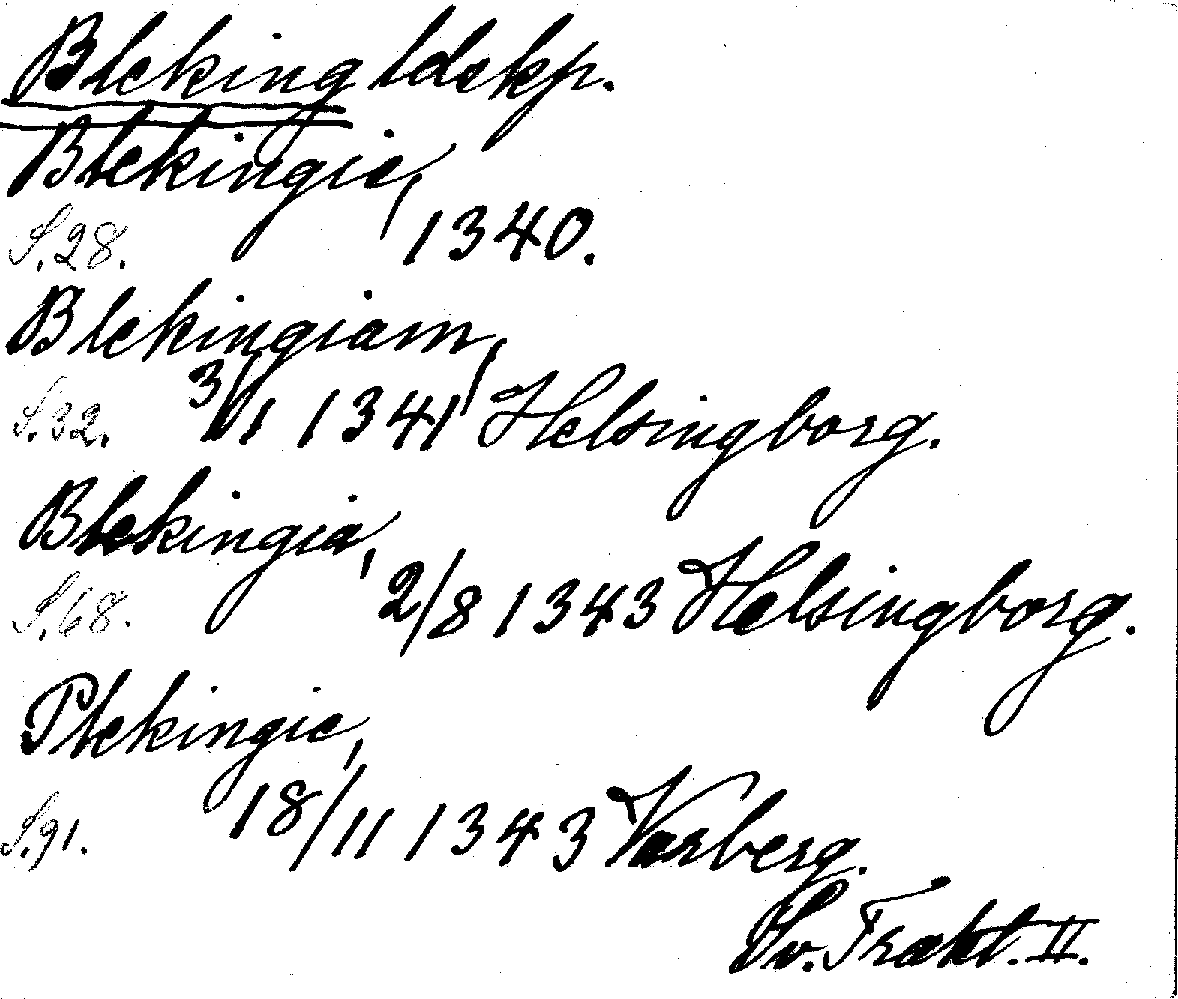 Bleking ldskp.
Blekingie,
S.28. 1340.
Blekingiam,
S.32. 3/1 1341 Helsingborg.
Blekingia,
S.68. 2/8 1343 Helsingborg.
Plekingie,
S.91. 18/11 1343 Varberg.
Sv. Trakt. II.